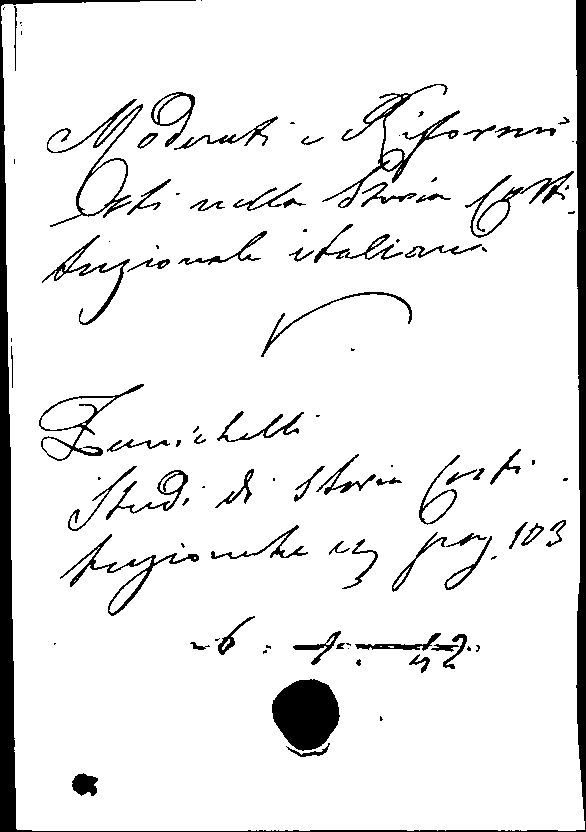 Moderati e Riformi
Dati nella Storia Costi
tuzionale italiana
V.
Zanichelli
Studi di storia Costi
tuzionale ecc pag. 103